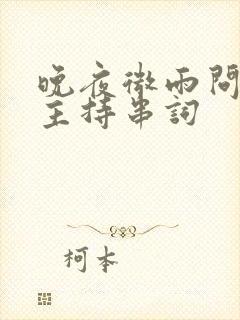 晚夜微雨問
主持串詞
柯本